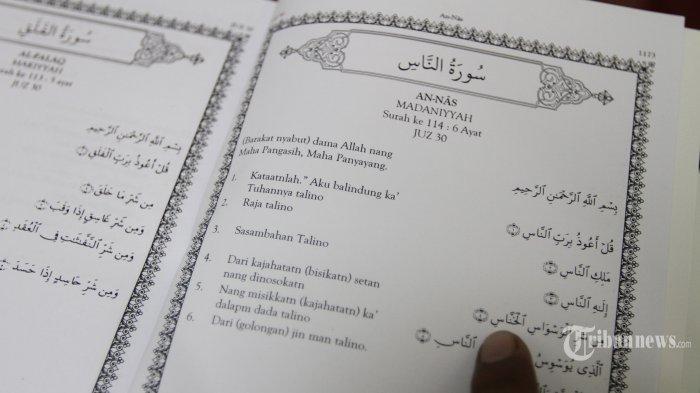 سُورَةُ الْفَلَقِ
AL-FALAQ
MAKIYYAH
Surah ke 113 : 5 Ayat
JUZ 30
بِسْمِ اللَّهِ الرَّحْمَٰنِ الرَّحِيمِ
قُلْ أَعُوذُ بِرَبِّ الْفَلَقِ ۝١
مِن شَرِّ مَا خَلَقَ ۝٢
وَمِن شَرِّ غَاسِقٍ إِذَا وَقَبَ ۝٣
وَمِن شَرِّ النَّفَّاثَاتِ فِي الْعُقَدِ ۝٤
وَمِن شَرِّ حَاسِدٍ إِذَا حَسَدَ ۝٥
An-Nâs
1173
سُورَةُ النَّاسِ
AN-NÂS
MADANIYYAH
Surah ke 114 : 6 Ayat
JUZ 30
(Barakat nyabut) dama Allah nang
Maha Pangasih, Maha Panyayang.
1. Kataatnlah." Aku balindung ka'
Tuhannya talino
2. Raja talino
3. Sasambahan Talino
4. Dari kajahatatn (bisikatn) setan
nang dinosokatn
5. Nang misikkatn (kajahatatn) ka'
dalapm dada talino
6. Dari (golongan) jin man talino.
بِسْمِ اللَّهِ الرَّحْمَٰنِ الرَّحِيمِ
قُلْ أَعُوذُ بِرَبِّ النَّاسِ ۝١
مَلِكِ النَّاسِ ۝٢
إِلَٰهِ النَّاسِ ۝٣
الْوَسْوَاسِ الْخَنَّاسِ ۝٤
الَّذِي يُوَسْوِسُ
النَّاسِ
Tribunnews.com